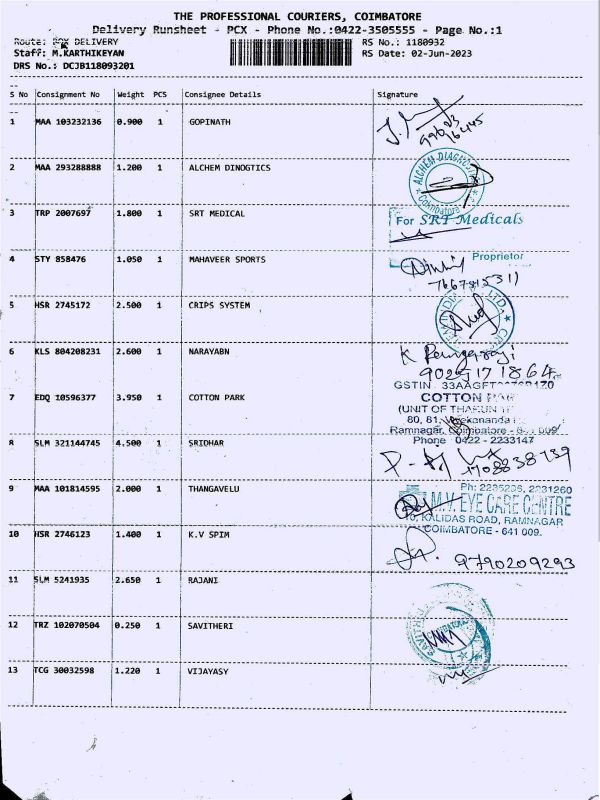 THE PROFESSIONAL COURIERS, COIMBATORE
Delivery Runsheet - PCX - Phone No.:0422-3505555 - Page No.:1
Route: PCX DELIVERY
RS No.: 1180932
Staff: M.KARTHIKEYAN
RS Date: 02-Jun-2023
DRS No.: DCJB118093201
S No Consignment No Weight PCS Consignee Details Signature
1 MAA 103232136 0.900 1 GOPINATH
2 MAA 293288888 1.200 1 ALCHEM DINOGTICS
ALCHEM
Coimbatore
3 TRP 2007697 1.800 1 SRT MEDICAL
For SRT Medicals
Proprietor
4 STY 858476 1.050 1 MAHAVEER SPORTS
5 HSR 2745172 2.500 1 CRIPS SYSTEM
6 KLS 804208231 2.600 1 NARAYABN
7 EDQ 10596377 3.950 1 COTTON PARK
GSTIN
COTTON
(UNIT OF
80, 81,
Ramnagar, Coimbatore
Phone 0422 - 2233147
8 SLM 321144745 4.500 1 SRIDHAR
9 MAA 101814595 2.000 1 THANGAVELU
Ph: 2231260
M.V. EYE CARE CENTRE
KALIDAS ROAD, RAMNAGAR
COIMBATORE - 641 009.
10 HSR 2746123 1.400 1 K.V SPIM
9790209293
11 SLM 5241935 2.650 1 RAJANI
12 TRZ 102070504 0.250 1 SAVITHERI
13 TCG 30032598 1.220 1 VIJAYASY